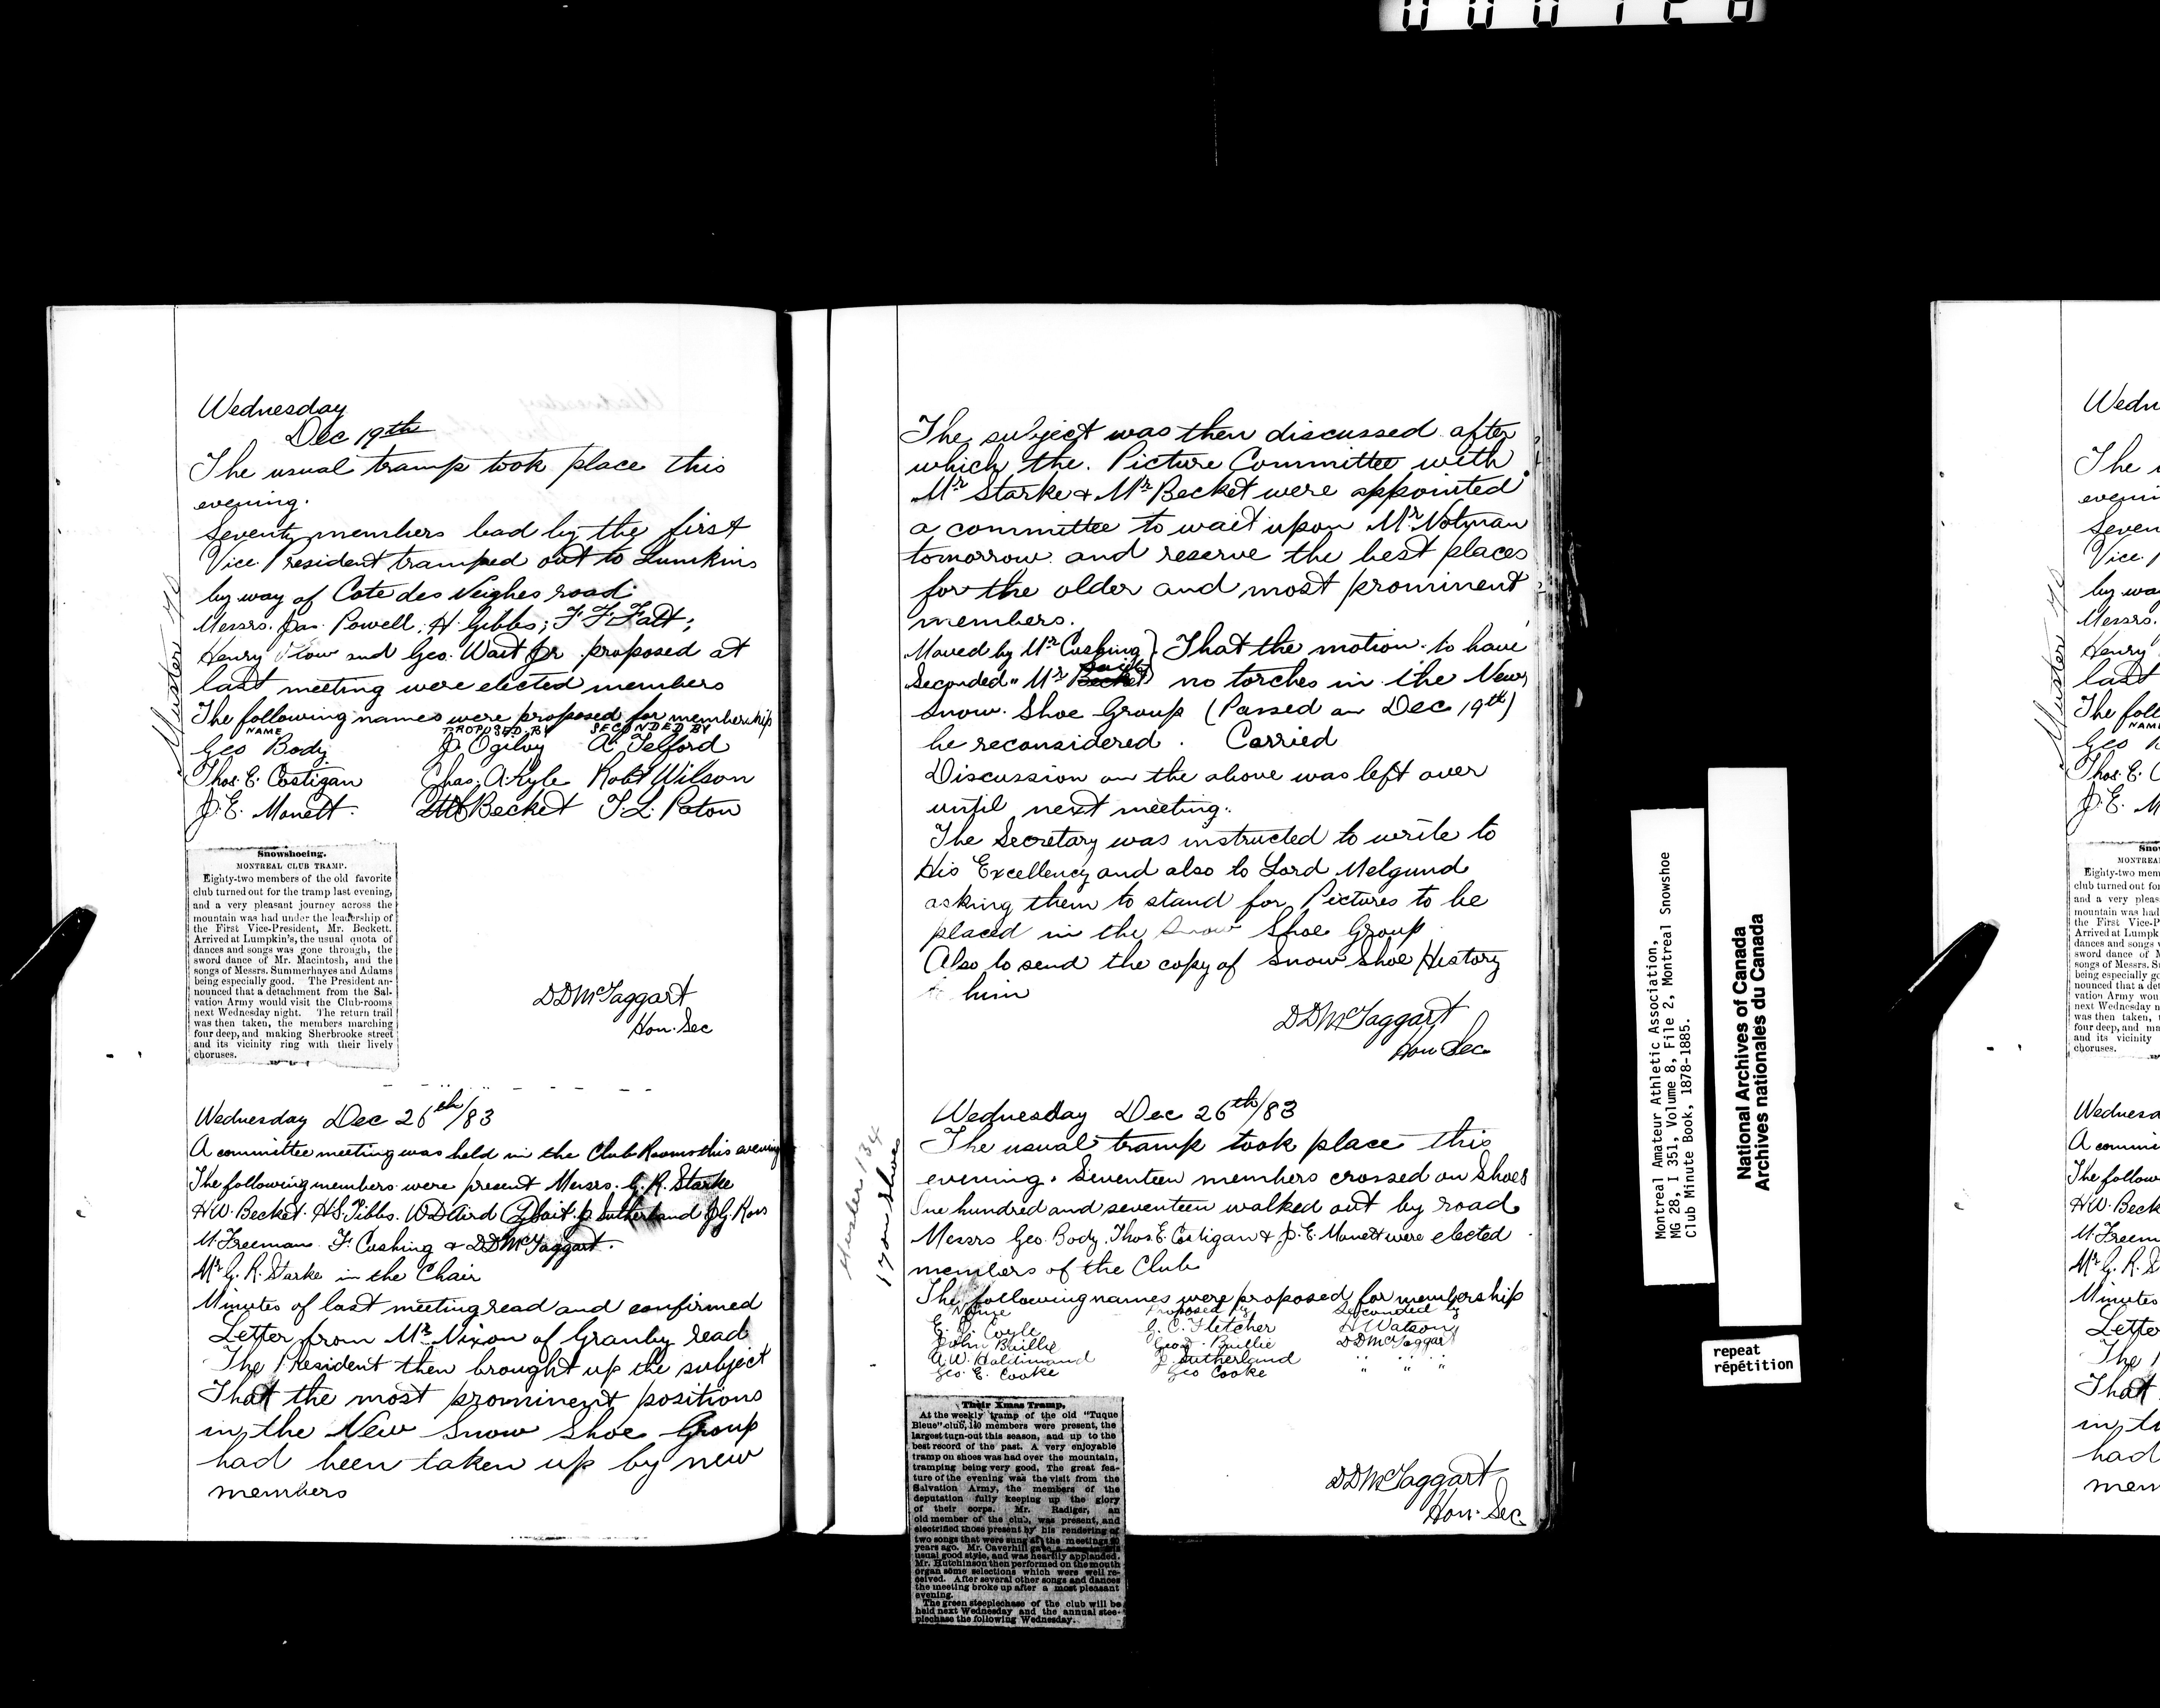 Wednesday
Dec 19th
The usual tramp took place this
evening.
Seventy members lead by the first
Vice President tramped out to Lumkins
by way of Cote des Neighes road.
Messrs. Jas. Powell; H. Gibbs; F. F. Fatt;
Henry and Geo. Wait Jr proposed at
last meeting were elected members
The following names were proposed for membership
NAME PROPOSED BY SECONDED BY
Geo Body J. Ogilvy A. Telford
Thos. E. Costigan Chas. A. Kyle Robt Wilson
J. E. Manett. HW Becket T. L. Paton
Muster 70
Snowshoeing.
MONTREAL CLUB TRAMP.
Eighty-two members of the old favorite
club turned out for the tramp last evening,
and a very pleasant journey across the
mountain was had under the leadership of
the First Vice-President, Mr. Beckett.
Arrived at Lumpkin's, the usual quota of
dances and songs was gone through, the
sword dance of Mr. Macintosh, and the
songs of Messrs. Summerhayes and Adams
being especially good. The President an-
nounced that a detachment from the Sal-
vation Army would visit the Club-rooms
next Wednesday night. The return trail
was then taken, the members marching
four deep, and making Sherbrooke street
and its vicinity ring with their lively
choruses.
DDMcTaggart
Hon. Sec
Wednesday Dec 26th/83
A committee meeting was held in the Club Rooms this evening
The following members were present Messrs. G. R. Starke
HW. Becket. HS. Tibbs. WD Aird J. Sutherland J.G. Ross
M. Freeman F. Cushing & DDMcTaggart.
Mr G. R. Starke in the Chair
Minutes of last meeting read and confirmed
Letter from Mr Nixon of Granby read
The President then brought up the subject
That the most prominent positions
in the New Snow Shoe Group
had been taken up by new
members
The subject was then discussed after
which the Picture Committee with
Mr Starke & Mr Becket were appointed
a committee to wait upon Mr Notman
tomorrow and reserve the best places
for the older and most prominent
members.
Moved by Mr Cushing } That the motion to have
Seconded " Mr Becket no torches in the New
Snow Shoe Group (Passed on Dec 19th)
be reconsidered. Carried
Discussion on the above was left over
until next meeting.
The Secretary was instructed to write to
His Excellency and also to Lord Melgund
asking them to stand for Pictures to be
placed in the Snow Shoe Group
Also to send the copy of Snow Shoe History
to him
DDMcTaggart
Hon. Sec
Wednesday Dec 26th/83
The usual tramp took place this
evening. Seventeen members crossed on Shoes
One hundred and seventeen walked out by road
Messrs Geo Body. Thos. E. Costigan & J. E. Manett were elected
members of the Club
Muster 134
17 on Shoes
The following names were proposed for membership
Name Proposed by Seconded by
E. Coyle J. C. Fletcher H Watson
John Baillie Geo Baillie DDMcTaggart
A.W. Haldimand J. Sutherland " " "
Geo. E. Cooke Geo Cooke " " "
Their Xmas Tramp,
At the weekly tramp of the old "Tuque
Bleue" club, 140 members were present, the
largest turn-out this season, and up to the
best record of the past. A very enjoyable
tramp on shoes was had over the mountain,
tramping being very good. The great fea-
ture of the evening was the visit from the
Salvation Army, the members of the
deputation fully keeping up the glory
of their corps. Mr. Radiger, an
old member of the club, was present, and
electrified those present by his rendering of
two songs that were sung at the meetings
years ago. Mr. Caverhill
usual good style, and was heartily applauded.
Mr. Hutchinson then performed on the mouth
organ some selections which were well re-
ceived. After several other songs and dances
the meeting broke up after a most pleasant
evening.
The green steeplechase of the club will be
held next Wednesday and the annual stee-
plechase the following Wednesday.
DDMcTaggart
Hon. Sec
Montreal Amateur Athletic Association,
MG 28, I 351, Volume 8, File 2, Montreal Snowshoe
Club Minute Book, 1878-1885.
National Archives of Canada
Archives nationales du Canada
repeat
répétition